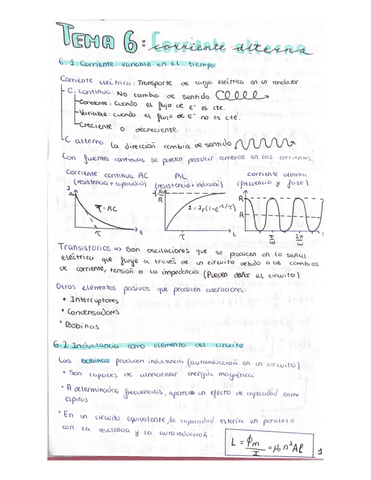 TEMA 6: corriente alterna
6.1 Corriente variable en el tiempo
Corriente eléctrica: Transporte de carga eléctrica en un conductor
C. continua: No cambia de sentido
Constante: cuando el flujo de e⁻ es cte.
Variable: cuando el flujo de e⁻ no es cte.
Creciente o decreciente.
C. alterna: la dirección cambia de sentido
Con fuentes continuas se pueden producir cambios en las corrientes.
Corriente continua RC
(resistencia + capacidad)
τ = RC
τ
t
RL
(resistencia + inductor)
I = I_f(1-e^{-t/τ})
τ
t
corriente alterna
(frecuencia y fase)
π/ω
2π/ω
t
Transistorios => Son oscilaciones que se producen en la señal
eléctrica que fluye a través de un circuito debido a los cambios
de corriente, tensión o la impedancia (Pueden dañar el circuito)
Otros elementos pasivos que producen alteraciones:
• Interruptores
• Condensadores
• Bobinas
6.2 Inductancia como elemento del circuito
Las bobinas producen inductancia (autoinducción en un circuito)
• Son capaces de almacenar energía magnética
• A determinadas frecuencias, aparece un efecto de capacidad entre
espiras
• En un circuito equivalente, la capacidad estaría en paralelo
con la resistencia y la autoinducción.
L = ϕm/I = μ₀n²Aℓ
1